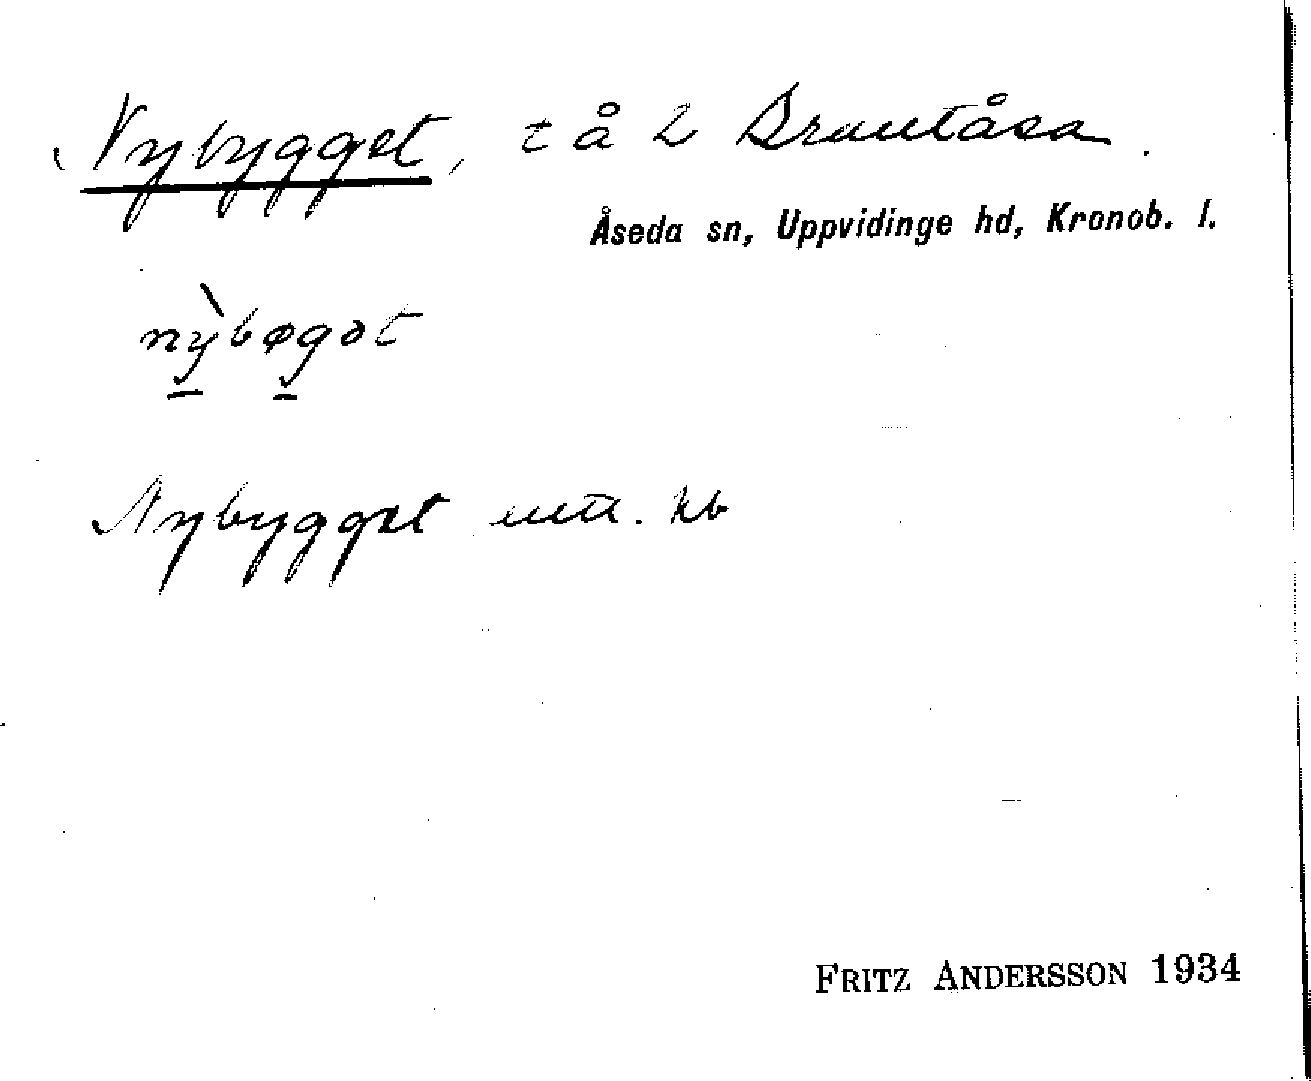 Nybygget, t å 2 Brantåsa.
Åseda sn, Uppvidinge hd, Kronob. l.
nỳbøgət
Nybygget utt. kb
FRITZ ANDERSSON 1934